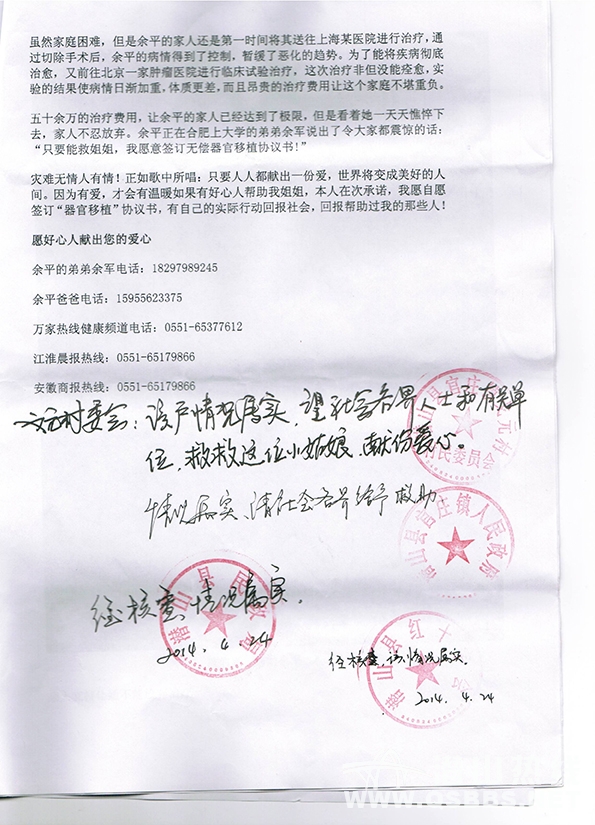 虽然家庭困难，但是余平的家人还是第一时间将其送往上海某医院进行治疗，
通过切除手术后，余平的病情得到了控制，暂缓了恶化的趋势。为了能将疾病彻底
治愈，又前往北京一家肿瘤医院进行临床试验治疗，这次治疗非但没能痊愈，实
验的结果使病情日渐加重，体质更差，而且昂贵的治疗费用让这个家庭不堪重负。
五十余万的治疗费用，让余平的家人已经达到了极限，但是看着她一天天憔悴下
去，家人不忍放弃。余平正在合肥上大学的弟弟余军说出了令大家都震惊的话：
“只要能救姐姐，我愿意签订无偿器官移植协议书！”
灾难无情人有情！正如歌中所唱：只要人人都献出一份爱，世界将变成美好的人
间。因为有爱，才会有温暖如果有好心人帮助我姐姐，本人在次承诺，我愿自愿
签订“器官移植”协议书，有自己的实际行动回报社会，回报帮助过我的那些人！
愿好心人献出您的爱心
余平的弟弟余军电话：18297989245
余平爸爸电话：15955623375
万家热线健康频道电话：0551-65377612
江淮晨报热线：0551-65179866
安徽商报热线：0551-65179866
文元村委会：该户情况属实，望社会各界人士和有关单
位，救救这位小姑娘，献份爱心。
村民委员会
情况属实，请社会各界给予救助
潜山县官庄镇人民政府
经核查，情况属实。
2014.4.24
潜山县民政局
经核查，该情况属实。
2014.4.24
潜山县红十